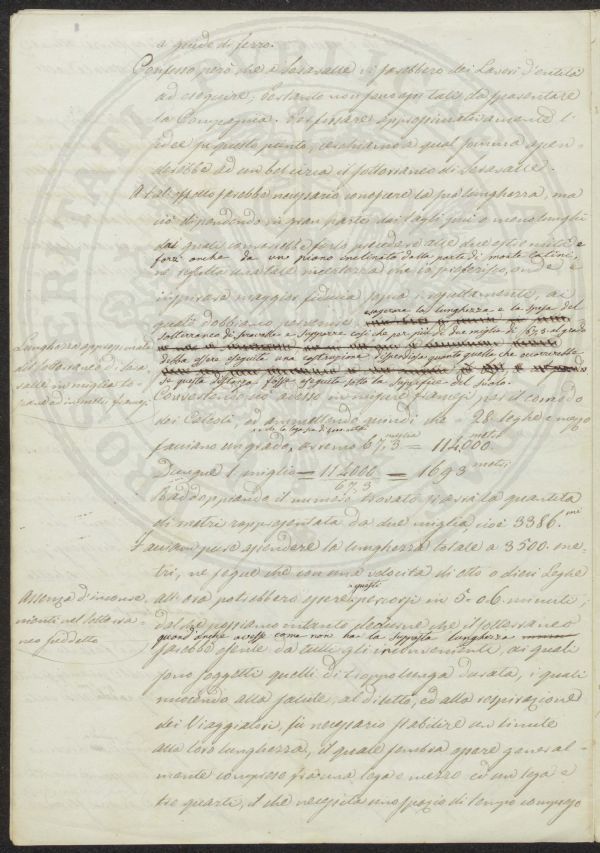 a guide di ferro.
Confesso però che a Seravalle vi sarebbero dei Lavori d'entità
ad eseguire; tantο non però tali da spaventare
la Compagnia. Per fissare approssimativamente l'
idea su questo punto, a qual somma
ad un bel circa il sotterraneo di Seravalle.
A tal effetto sarebbe necessario conoscere la sua lunghezza, ma
ciò dipendendo in gran parte dai tagli più o meno lunghi
dai quali converrebbe farlo precedere alle due estremità e
forse anche da un piano inclinato dalla parte di monte Catini,
ne risulta una tale incertezza che io preferisco, onde
inspirare maggior fiducia
quali dobbiamo pervenire esagerare la lunghezza e la spesa del
sotterraneo di Seravalle e supporre così che per più di due miglia di 67.3 al grado
debba essere eseguita una costruzione dispendiosa quanto quella che occorrerebbe
se questa distanza fosse eseguita sotto la superficie del suolo.
Lunghezza approssimata
del sotterraneo di Sera
valle in miglia to-
scane ed in metri francesi
Convertendo adesso in misure francesi per il comodo
dei Calcoli, ed ammettendo quindi che 28 leghe e mezzo
facciano un grado, avremo 67,3 = 114000. metri
Dunque 1 miglio = 114000 / 67,3 = 1693 metri
Raddoppiando il numero trovato si avrà la quantità
di metri rappresentata da due miglia cioè 3386. mi
Facciam pure ascendere la lunghezza totale a 3500. me-
tri, ne segue che con una velocità di otto o dieci Leghe
all'ora potrebbero essere questi percorsi in 5. o 6. minuti;
Assenza d'inconve
nienti nel sotterra-
neo suddetto
dal che possiamo intanto dedurne che il sotterraneo
quand'anche avesse come non ha la supposta lunghezza
sarebbe esente da tutti gli inconvenienti, ai quali
sono soggetti quelli di troppo lunga durata, i quali
nuocendo alla salute, al diletto, ed alla respirazione
dei Viaggiatori, fu necessario stabilire un limite
alla loro lunghezza, il quale sembra essere general-
mente compreso fra una lega e mezzo ed un lega e
tre quarti, il che necessita uno spazio di tempo compreso